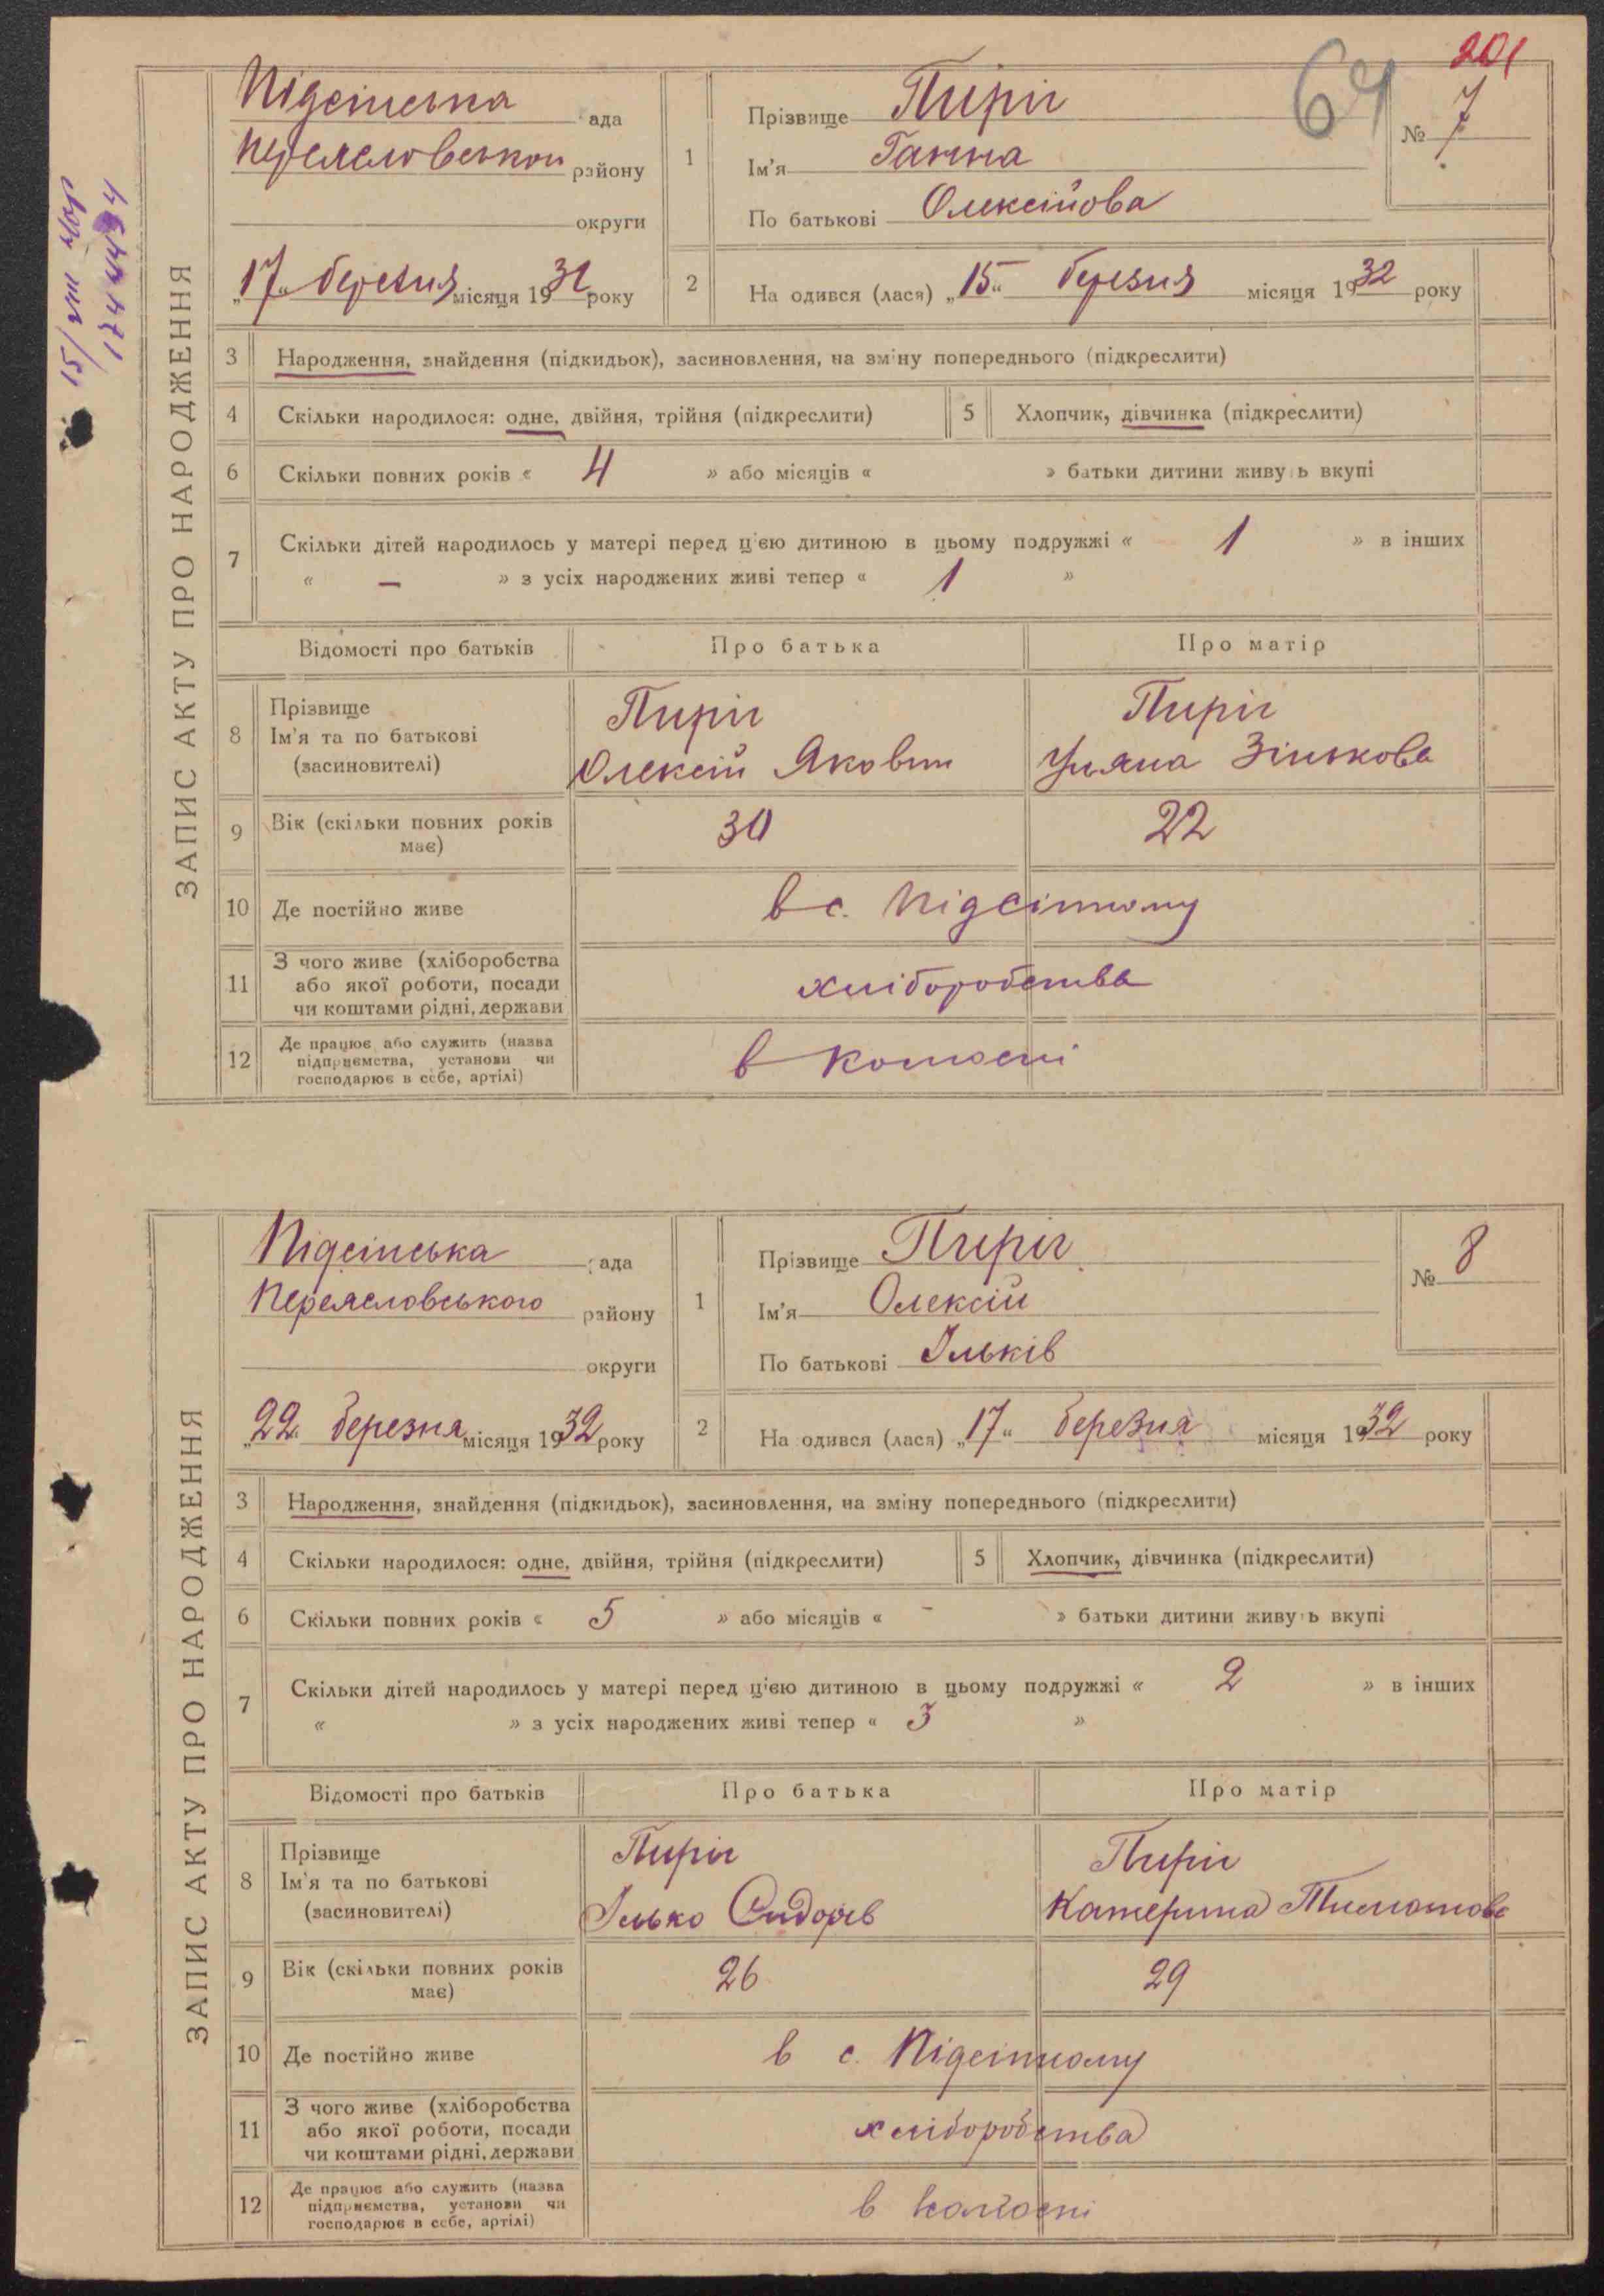 201
64
Підсінська рада
Переяславського району
округи
„17“ березня місяця 1932 року
1
Прізвище Пиріг
Ім'я Ганна
По батькові Олексійова
№ 7
2
На одився (лася) „15“ березня місяця 1932 року
ЗАПИС АКТУ ПРО НАРОДЖЕННЯ
3 Народження, знайдення (підкидьок), засиновлення, на зміну попереднього (підкреслити)
4 Скільки народилося: одне, двійня, трійня (підкреслити) 5 Хлопчик, дівчинка (підкреслити)
6 Скільки повних років « 4 » або місяців « » батьки дитини живуть вкупі
7 Скільки дітей народилось у матері перед цією дитиною в цьому подружжі « 1 » в інших
« — » з усіх народжених живі тепер « 1 »
Відомості про батьків Про батька Про матір
8 Прізвище Пиріг Пиріг
Ім'я та по батькові
(засиновителі) Олексій Якович Уляна Зінькова
9 Вік (скільки повних років має) 30 22
10 Де постійно живе в с. Підсінному
11 З чого живе (хліборобства
або якої роботи, посади хліборобства
чи коштами рідні, держави
12 Де працює або служить (назва
підприємства, установи чи в колгоспі
господарює в себе, артілі)
Підсінська рада
Переяславського району
округи
„22“ березня місяця 1932 року
1
Прізвище Пиріг
Ім'я Олексій
По батькові Ільків
№ 8
2
На одився (лася) „17“ березня місяця 1932 року
ЗАПИС АКТУ ПРО НАРОДЖЕННЯ
3 Народження, знайдення (підкидьок), засиновлення, на зміну попереднього (підкреслити)
4 Скільки народилося: одне, двійня, трійня (підкреслити) 5 Хлопчик, дівчинка (підкреслити)
6 Скільки повних років « 5 » або місяців « - » батьки дитини живуть вкупі
7 Скільки дітей народилось у матері перед цією дитиною в цьому подружжі « 2 » в інших
« » з усіх народжених живі тепер « 3 »
Відомості про батьків Про батька Про матір
8 Прізвище Пиріг Пиріг
Ім'я та по батькові
(засиновителі) Ілько Сидорів Катерина Тимошова
9 Вік (скільки повних років має) 26 29
10 Де постійно живе в с. Підсінному
11 З чого живе (хліборобства
або якої роботи, посади хліборобства
чи коштами рідні, держави
12 Де працює або служить (назва
підприємства, установи чи в колгоспі
господарює в себе, артілі)